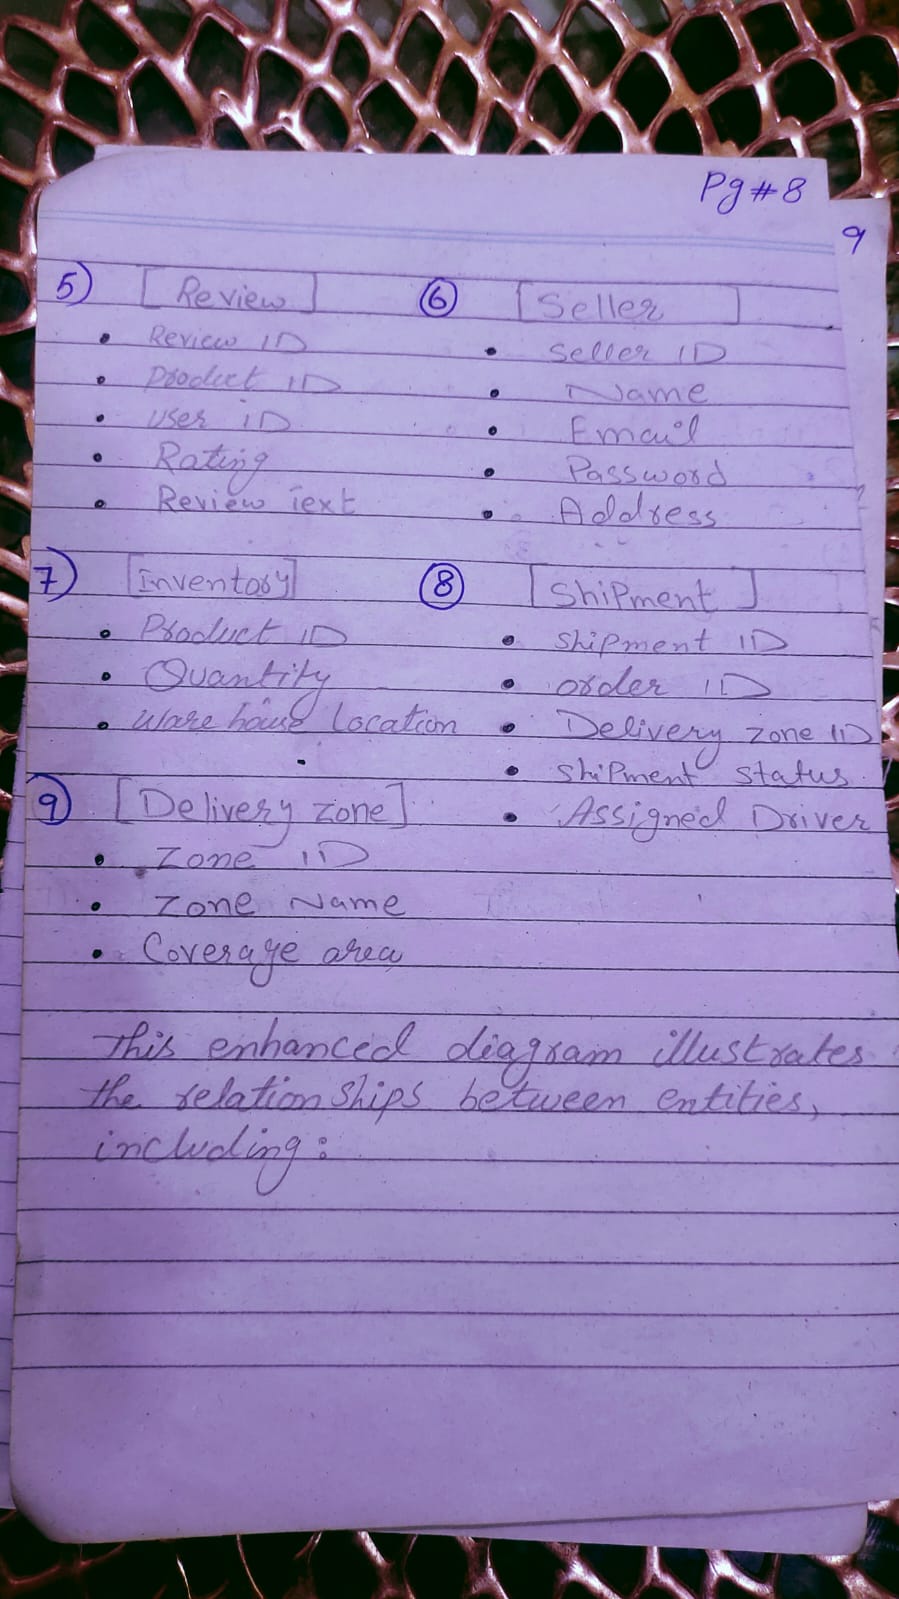 Pg # 8
9
5) [Review]
• Review ID
• Product ID
• User ID
• Rating
• Review Text
6 [Seller]
• Seller ID
• Name
• Email
• Password
• Address
7) [Inventory]
• Product ID
• Quantity
• Ware house Location
8 [Shipment]
• Shipment ID
• order ID
• Delivery zone ID
• Shipment status
• Assigned Driver
9 [Delivery zone]
• Zone ID
• Zone Name
• Coverage area
This enhanced diagram illustrates
the relationships between entities,
including: